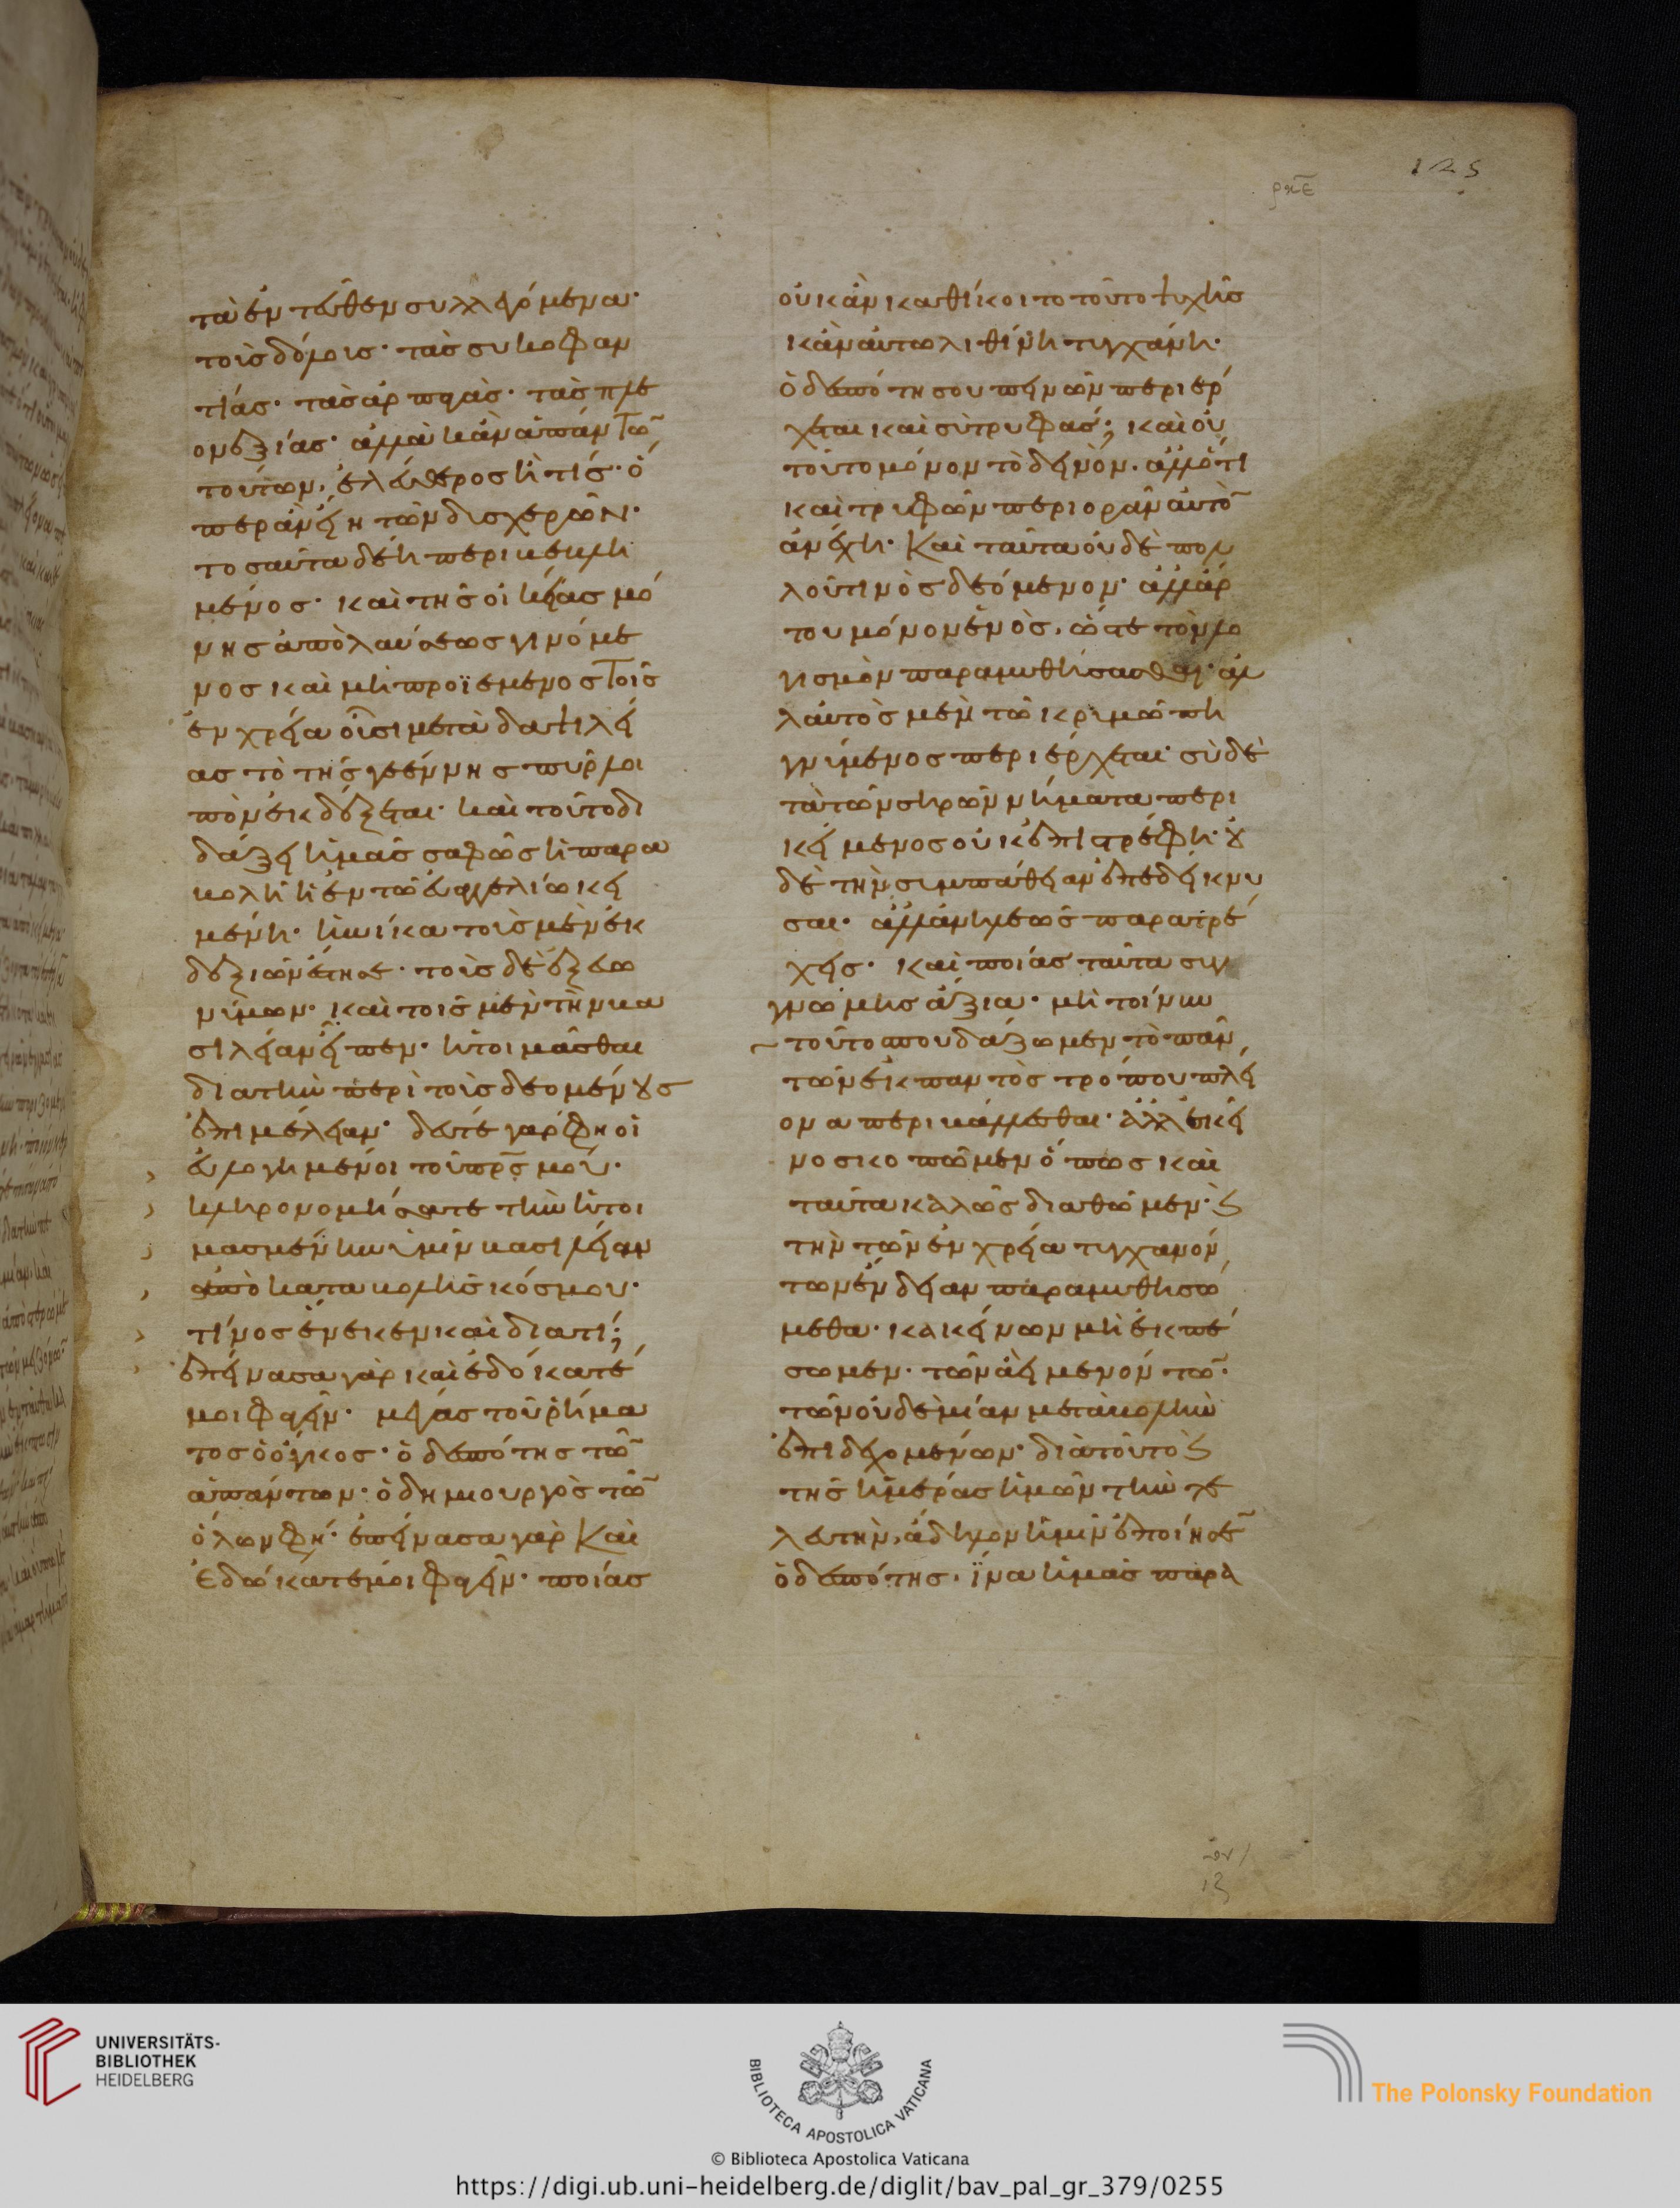 ρκε
125
τὰ ἐντεῦθεν συλλεγόμενα·
τοῖσ δόμοισ· τὰσ συκοφαν
τίασ· τὰσ ἁρπαγὰσ· τὰσ πλε
ονεξίασ· ἀλλὰ κἂν ἁπάντων
τούτων, ἐλεύθεροσ ἦ τίσ· ὁ
περ ἂν εἴη τῶν δυσχερῶν·
τοσαῦτα δὲ ἦ περικεκλη
μένοσ· καὶ τῆσ οἰκείασ μό
νησ ἀπολαύσεωσ γινόμε
νοσ καὶ μὴ προϊέμενοσ τοῖσ
ἐν χρεία οὖσι μετὰ δαψιλεί
ασ τὸ τῆσ γεέννησ πῦρ λοι
πὸν ἐκδέξεται· καὶ τοῦτο δι
δάξει ἡμᾶσ σαφῶσ ἡ παρα
βολὴ ἡ ἐν τῶ εὐαγγελίω κει
μένη· ἡνίκα τοῖσ μὲν ἐκ
δεξιῶν ἔτησε· τοῖσ δὲ ἐξ εὐω
νύμων· καὶ τοῖσ μὲν τὴν βα
σιλείαν εἶπεν· ἡτοιμᾶσθαι
διὰ τὴν περὶ τοὺσ δεομένουσ
ἐπιμέλειαν· δεῦτε γάρ φησι οἱ
εὐλογημένοι τοῦ πρσ μου·
κληρονομήσατε τὴν ἡτοι
μασμένην ὑμῖν βασιλείαν
ἀπὸ καταβολῆσ κόσμου·
τίνοσ ἕνεκεν καὶ διατί;
ἐπείνασα γὰρ καὶ ἐδόκατέ
μοι φαγεῖν· μέγασ τοῦ ῥήμα
τοσ ὁ ὄγκοσ· ὁ δεσπότησ τῶν
ἁπάντων· ὁ δημιουργὸσ τῶν
ὅλων φησί· ἐπείνασα γὰρ καὶ
ἐδώκατέ μοι φαγεῖν· ποίασ
οὐκ ἂν καθίκοιτο τοῦτο ψυχῆσ
κἂν αὐτωλιθίνη τυγχάνη·
ὁ δεσπότησ σου πεινῶν περιέρ
χεται καὶ σὺ τρυφᾶσ; καὶ οὐ
τοῦτο μόνον τὸ δεινόν. ἀλλ ὅτι
καὶ τρυφῶν περιορᾶν αὐτὸν
ἀνέχη· Καὶ ταῦτα οὐδὲ πολ
λοῦ τινὸσ δεόμενον· ἀλλ ἄρ
του μόνον ἑνὸσ, ὥστε τὸν λο
γισμὸν παραμυθήσασθαι· ἀλ
λ αὐτὸσ μὲν τῶ κριμῶ πη
γνύμενοσ περιέρχεται· σὺ δὲ
τὰ τῶν σηρῶν νήματα περι
κείμενοσ οὐκ ἐπιστρέφη· οὐ
δὲ τὴν συμπάθειαν ἐπιδείκνυ
σαι· ἀλλ ἀνηλεῶσ παρατρέ
χεισ· καὶ ποίασ ταῦτα συγ
γνώμησ ἄξια· μὴ τοίνυν
τοῦτο σπουδάζωμεν τὸ πᾶν
τῶν ἐκ παντὸσ τρόπου πλεί
ονα περιβάλλεσθαι· ἀλλ ἐκεῖ
νο σκοπῶμεν ὅπωσ καὶ
ταῦτα καλῶσ διαθῶμεν· καὶ
τὴν τῶν ἐν χρεία τυγχανόν
των ἔνδειαν παραμυθησώ
μεθα· κἀκείνων μὴ ἐκπέ
σωμεν· τῶν ἀεὶ μενόντων·
τῶν οὐδεμίαν μεταβολὴν
ἐπιδεχομένων· διὰ τοῦτο καὶ
τῆσ ἡμέρασ ἡμῶν τὴν τε
λευτὴν, ἄδηλον ἡμῖν ἐποίησεν
ὁ δεσπότησ. ἵνα ἡμᾶσ παρα
UNIVERSITÄTS-
BIBLIOTHEK
HEIDELBERG
BIBLIOTECA APOSTOLICA VATICANA
The Polonsky Foundation
© Biblioteca Apostolica Vaticana
https://digi.ub.uni-heidelberg.de/diglit/bav_pal_gr_379/0255